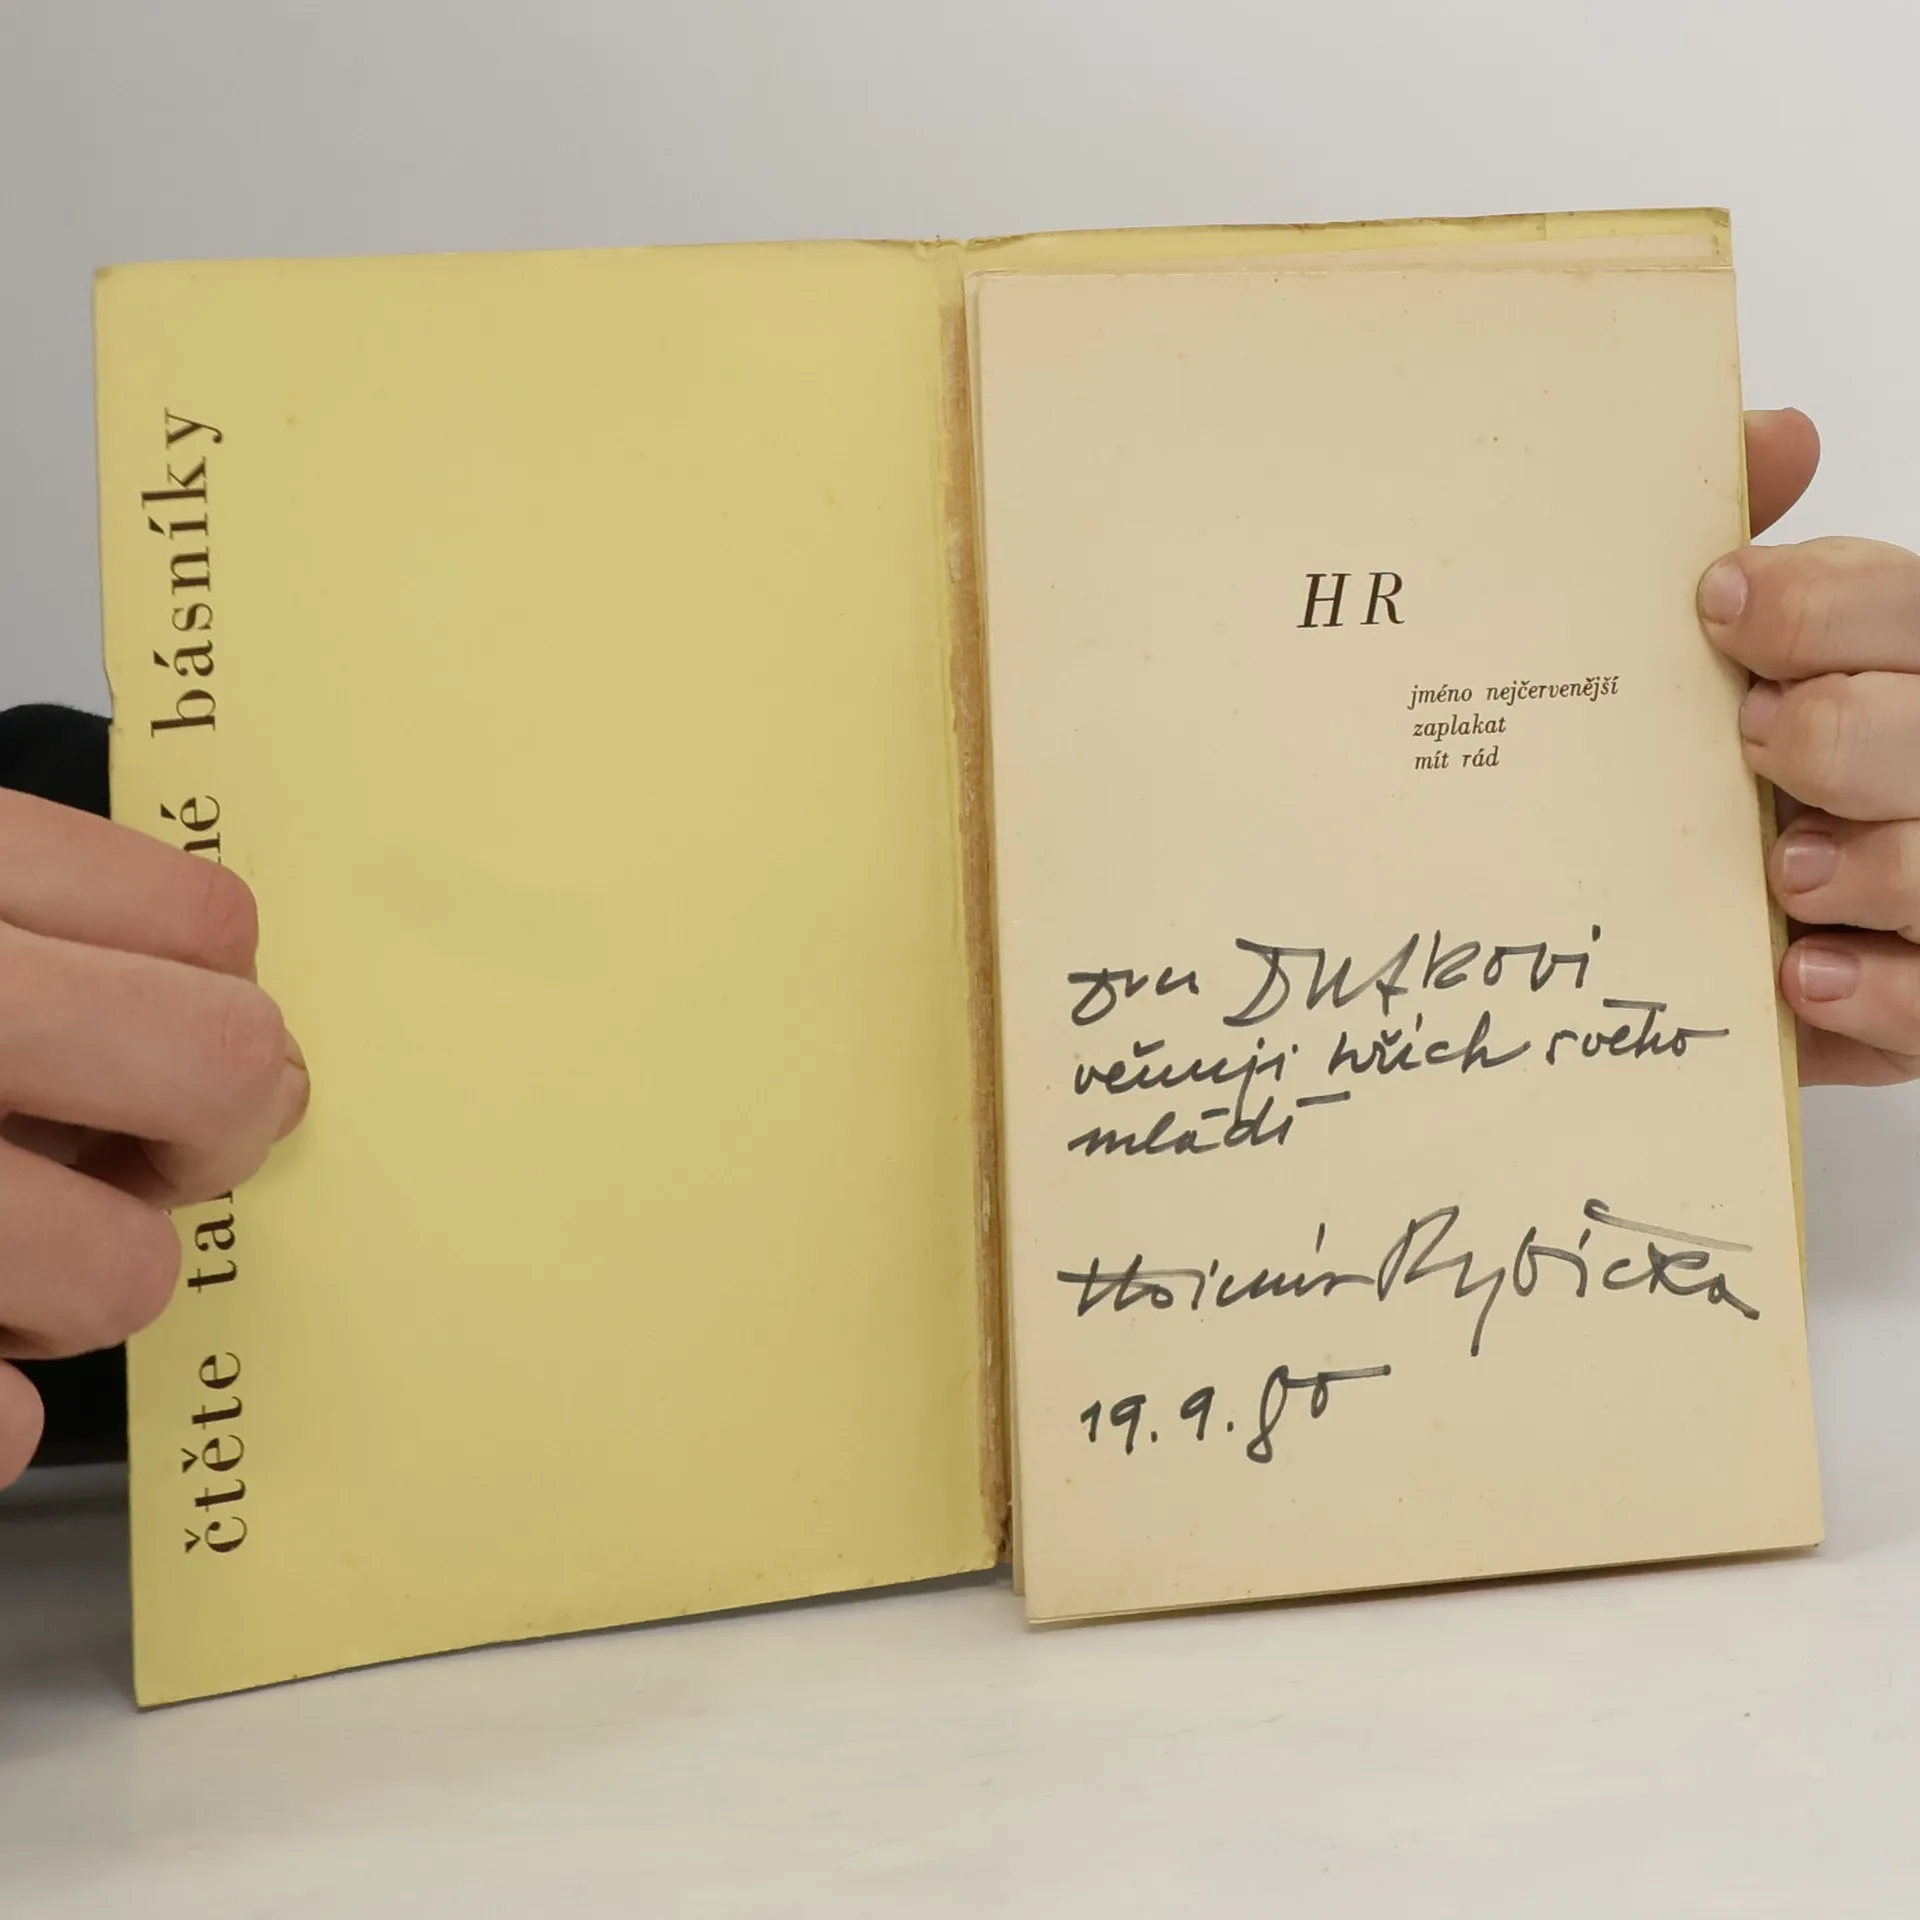 čtěte ta né básníky
HR
jméno nejčervenější
zaplakat
mít rád
Dutkovi
věnuji hřích svého
mládí
Hojmír Rybička
19. 9. 80